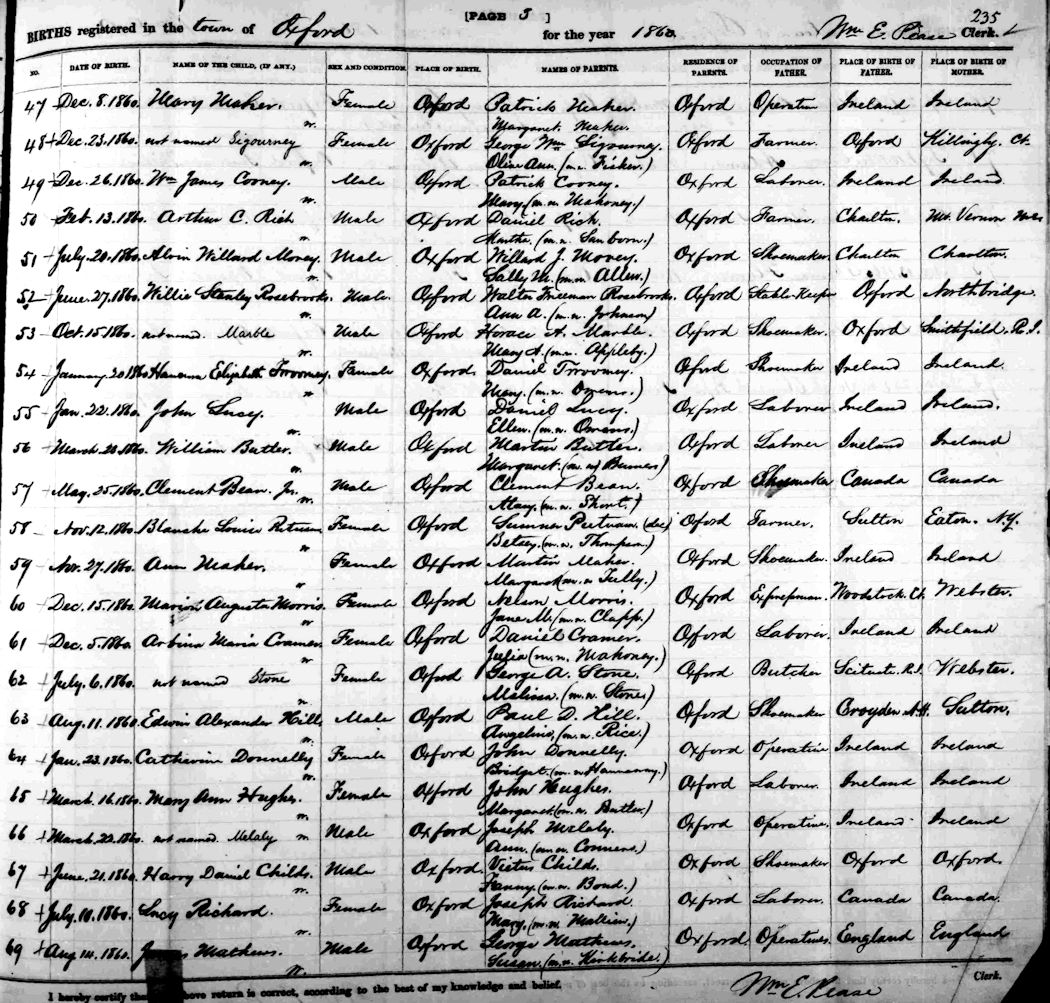 [PAGE 3] 235
BIRTHS registered in the town of Oxford for the year 1860. Wm E. Pease Clerk.
NO. DATE OF BIRTH. NAME OF THE CHILD, (IF ANY.) SEX AND CONDITION. PLACE OF BIRTH. NAMES OF PARENTS. RESIDENCE OF PARENTS. OCCUPATION OF FATHER. PLACE OF BIRTH OF FATHER. PLACE OF BIRTH OF MOTHER.
47 Dec. 8. 1860. Mary Maher. Female Oxford Patrick Maher. Oxford Operative Ireland Ireland
w. Margaret Maher
48 Dec. 23. 1860. not named Sigourney Female Oxford George Wm Sigourney. Oxford Farmer. Oxford Killingly. Ct.
w. Olive Ann, (m.n. Fisher.)
49 Dec. 26. 1860. Wm James Cooney. Male Oxford Patrick Cooney. Oxford Laborer. Ireland Ireland
w. Mary. (m.n. Mahoney.)
50 Feb. 13. 1860. Arthur C. Rich Male Oxford Daniel Rich. Oxford Farmer. Charlton. Mt. Vernon
w. Martha. (m.n. Sanborn.)
51 July. 20. 1860. Alvin Willard Morey. Male Oxford Willard J. Morey. Oxford Shoemaker. Charlton Charlton.
w. Sally M. (m.n. Allen.)
52 June. 27. 1860. Willie Stanley Rosebrooks. Male. Oxford Walter Freeman Rosebrooks. Oxford Stable-Keeper Oxford Northbridge.
w. Ann A. (m.n. Johnson)
53 Oct. 15. 1860. not named. Marble Male Oxford Horace A. Marble. Oxford Shoemaker. Oxford Smithfield. R.I.
w. Mary A. (m.n. Appleby.)
54 January. 20 1860 Elizabeth Female Oxford. Daniel Oxford Shoemaker Ireland Ireland.
w. Mary. (m.n. Owens.)
55 Jan. 22. 1860. John Lucy. Male Oxford Daniel Lucy. Oxford Laborer Ireland Ireland.
w. Ellen. (m.n. Owens.)
56 March. 20. 1860. William Butler. Male Oxford Martin Butler. Oxford Laborer Ireland Ireland
w. Margaret. (m.n.
57 May. 25. 1860. Clement Bean. Jr. Male Oxford Clement Bean. Oxford Shoemaker Canada Canada
w. Mary. (m.n. Short.)
58 Nov. 12. 1860. Blanche Louise Putnam Female Oxford Sumner Putnam. (dec) Oxford Farmer. Sutton Eaton. N.Y.
w Betsey. (m.n. Thompson)
59 Nov. 27. 1860. Ann Maher. Female Oxford Martin Maher. Oxford Shoemaker. Ireland Ireland
w Margaret (m.n. Tully.)
60 Dec. 15. 1860. Marion Augusta Morris. Female Oxford Nelson Morris. Oxford Expressman. Woodstock. Ct. Webster.
w Jane M. (m.n. Clapp.)
61 Dec. 5. 1860. Arbina Maria Cramer Female Oxford Daniel Cramer. Oxford Laborer. Ireland Ireland
w Julia (m.n. Mahoney.)
62 July. 6. 1860. not named Stone Female Oxford George A. Stone. Oxford Butcher Scituate. R.I. Webster.
w. Melissa. (m.n. Stone)
63 Aug. 11. 1860. Edwin Alexander Hill Male Oxford Paul D. Hill. Oxford Shoemaker Croyden. N.H. Sutton.
w. Angeline. (m.n. Rice.)
64 Jan. 23. 1860. Catherine Donnelly Female Oxford John Donnelly. Oxford Operative Ireland Ireland
w. Bridget. (m.n. Hannaway.)
65 March. 16. 1860. Mary Ann Hughes. Female Oxford John Hughes. Oxford Laborer. Ireland Ireland
w. Margaret. (m.n. Butler.)
66 March. 20. 1860. not named Melaly w. Male Oxford Joseph Melaly. Oxford Operative. Ireland. Ireland
Ann. (m.n. Conners.)
67 June. 21. 1860. Harry Daniel Childs. Male Oxford. Vietus Childs. Oxford Shoemaker Oxford Oxford.
w. Fanny. (m.n. Bond.)
68 July. 10. 1860. Lucy Richard. Female Oxford Joseph Richard. Oxford Laborer. Canada Canada.
w. Mary. (m.n.
69 Aug 14. 1860. Mathews. Male Oxford George Mathews. Oxford. Operatives. England England
w. Susan. (m.n. Kirkbride.)
I hereby certify that above return is correct, according to the best of my knowledge and belief. Wm E. Pease Clerk.